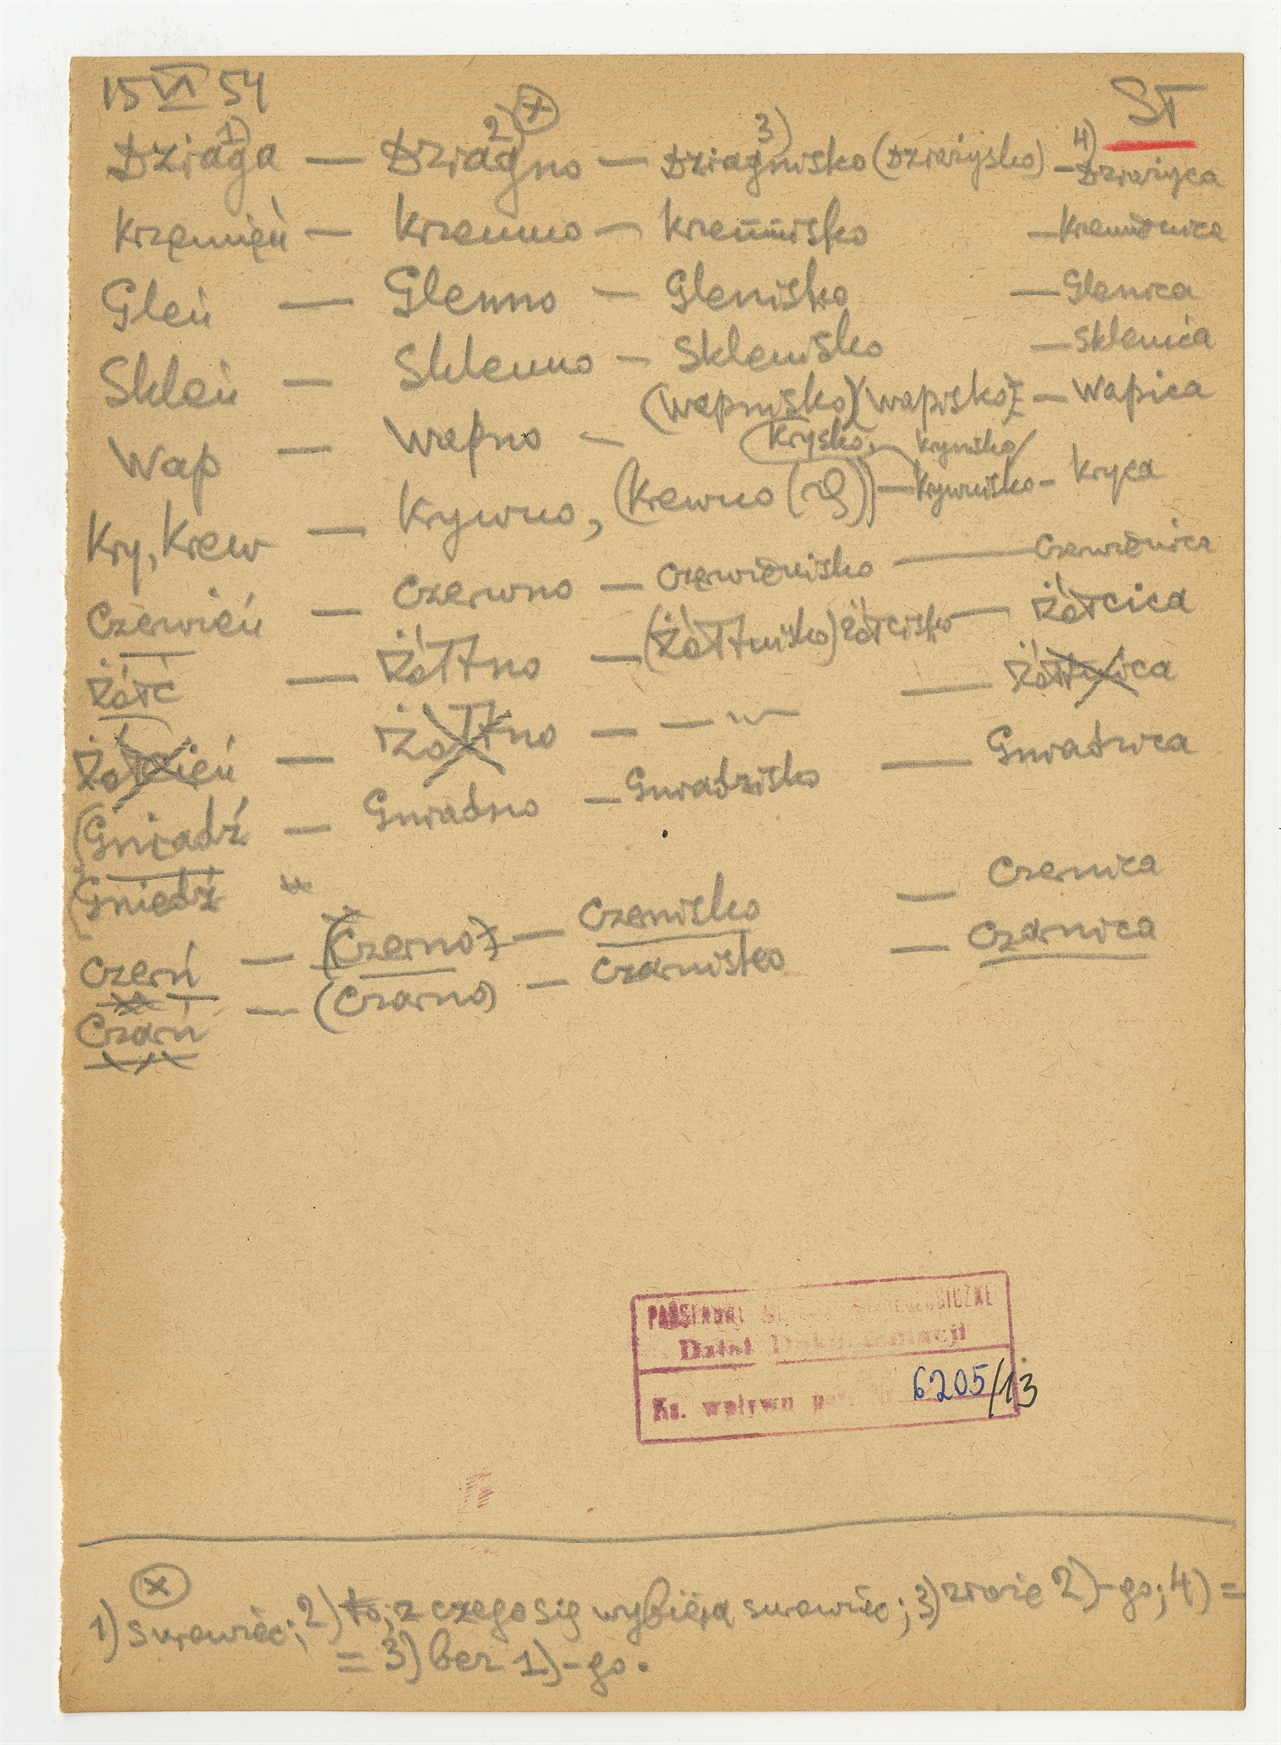 15 VI 54
ST
Dziaga 1) — Dziagno 2) (x) — Dziagnisko 3) (Dziażysko) — 4) Dziażyca
Krzemień — Krzemno — Kremnisko — Kremiönica
Gleń — Glenno — Glenisko — Glenica
Skleń — Sklenno — Sklenisko — Sklenica
Wap — Wapno — (Wapnisko) (Wapisko) — Wapica
Krysko, Krynisko
Kry, Krew — Krywno, (Krewno — Krywnisko — Kryca
Czerwień — Czerwno — Czerwiönisko — Czerwiönica
Żółć — Żółtno — (Żółtnisko) żółcisko — Żółcica
Żółcień — Żółtno — — — Żółtnica
(Gniadź — Gniadno — Gniadzisko — Gniadnica
(Gniedź "
Czerń — (Czerno) — Czernisko — Czernica
Czarń — (Czarno) — Czarnisko — Czarnica
Dział Dokumentacji
Ks. wpływu poz. Nr 6205/13
(x)
1) surowiec; 2) to, z czego się wybiera surowiec; 3) złoże 2)-go; 4) =
= 3) bez 1)-go.